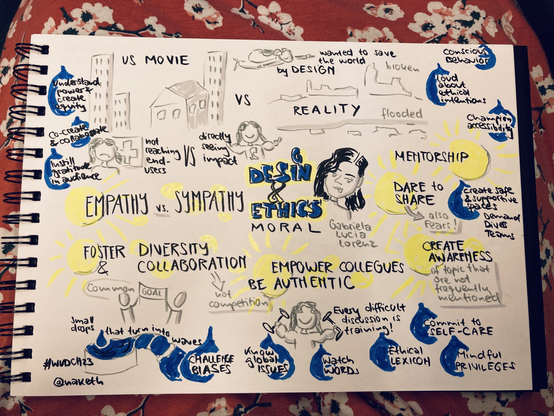 VS MOVIE
wanted to save
the world
by DESIGN
broken
VS
REALITY
flooded
Conscious
Behavior
loud
about
ethical
intentions
Champion
accessibility
Understand
power &
create
equity
Co-create
& collaborate
Instill
gratitude
in audience
not
reaching
end-
users
VS
directly
seeing
impact
DESIGN
&
ETHICS
MORAL
Gabriella
Lucia
Lorenz
MENTORSHIP
DARE TO
SHARE
also
fears!
create safe
& supportive
spaces
Demand
Divers
Teams
EMPATHY vs. SYMPATHY
CREATE
AWARENESS
of topic that
are not
frequently
mentioned
FOSTER DIVERSITY
& COLLABORATION
not
competition
Common
GOAL
EMPOWER COLEGUES
BE AUTHENTIC
Every difficult
discussion is
training!
small
drops
that turn into
waves
#WUDCH23
@naketh
CHALLENGE
BIASES
Know
global
ISSUES
Watch
WORDS
Ethical
LEXICON
Commit to
SELF-CARE
Mindful
PRIVILEGES